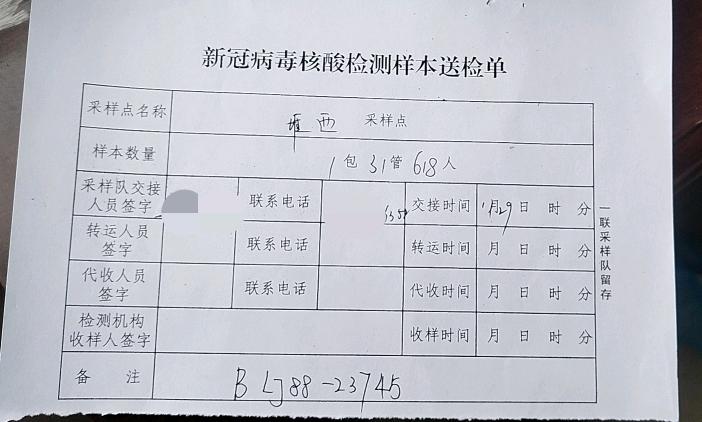 新冠病毒核酸检测样本送检单
采样点名称 堆西 采样点
样本数量 1包31管618人
采样队交接人员签字 联系电话 交接时间 1月29日 时 分
转运人员签字 联系电话 转运时间 月 日 时 分
代收人员签字 联系电话 代收时间 月 日 时 分
检测机构收样人签字 收样时间 月 日 时 分
备 注 BLJ88-23745
一联采样队留存